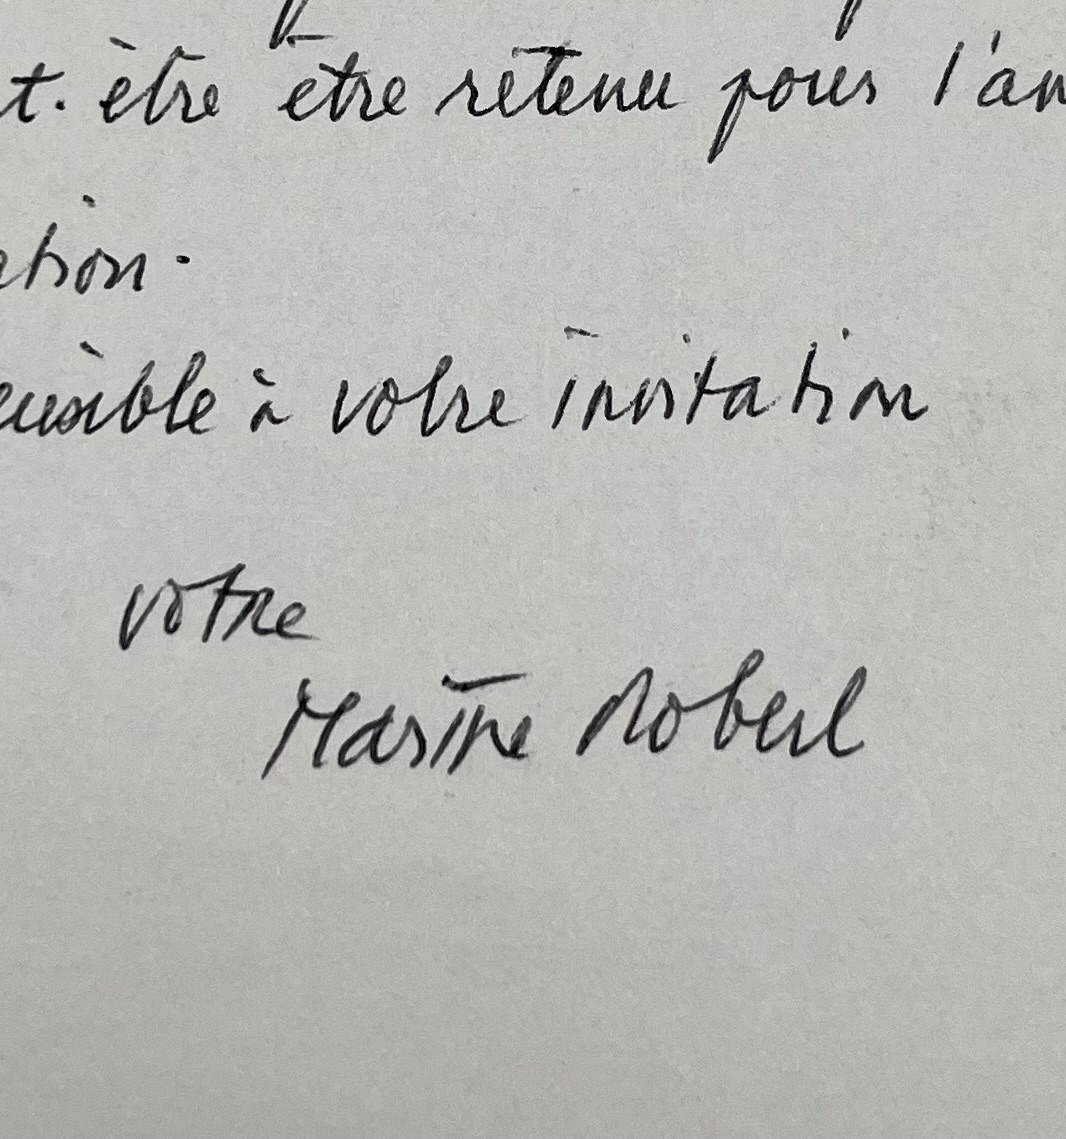 t. être être retenu pour l'an
ation.
ensible à votre invitation
votre
Marthe Robert